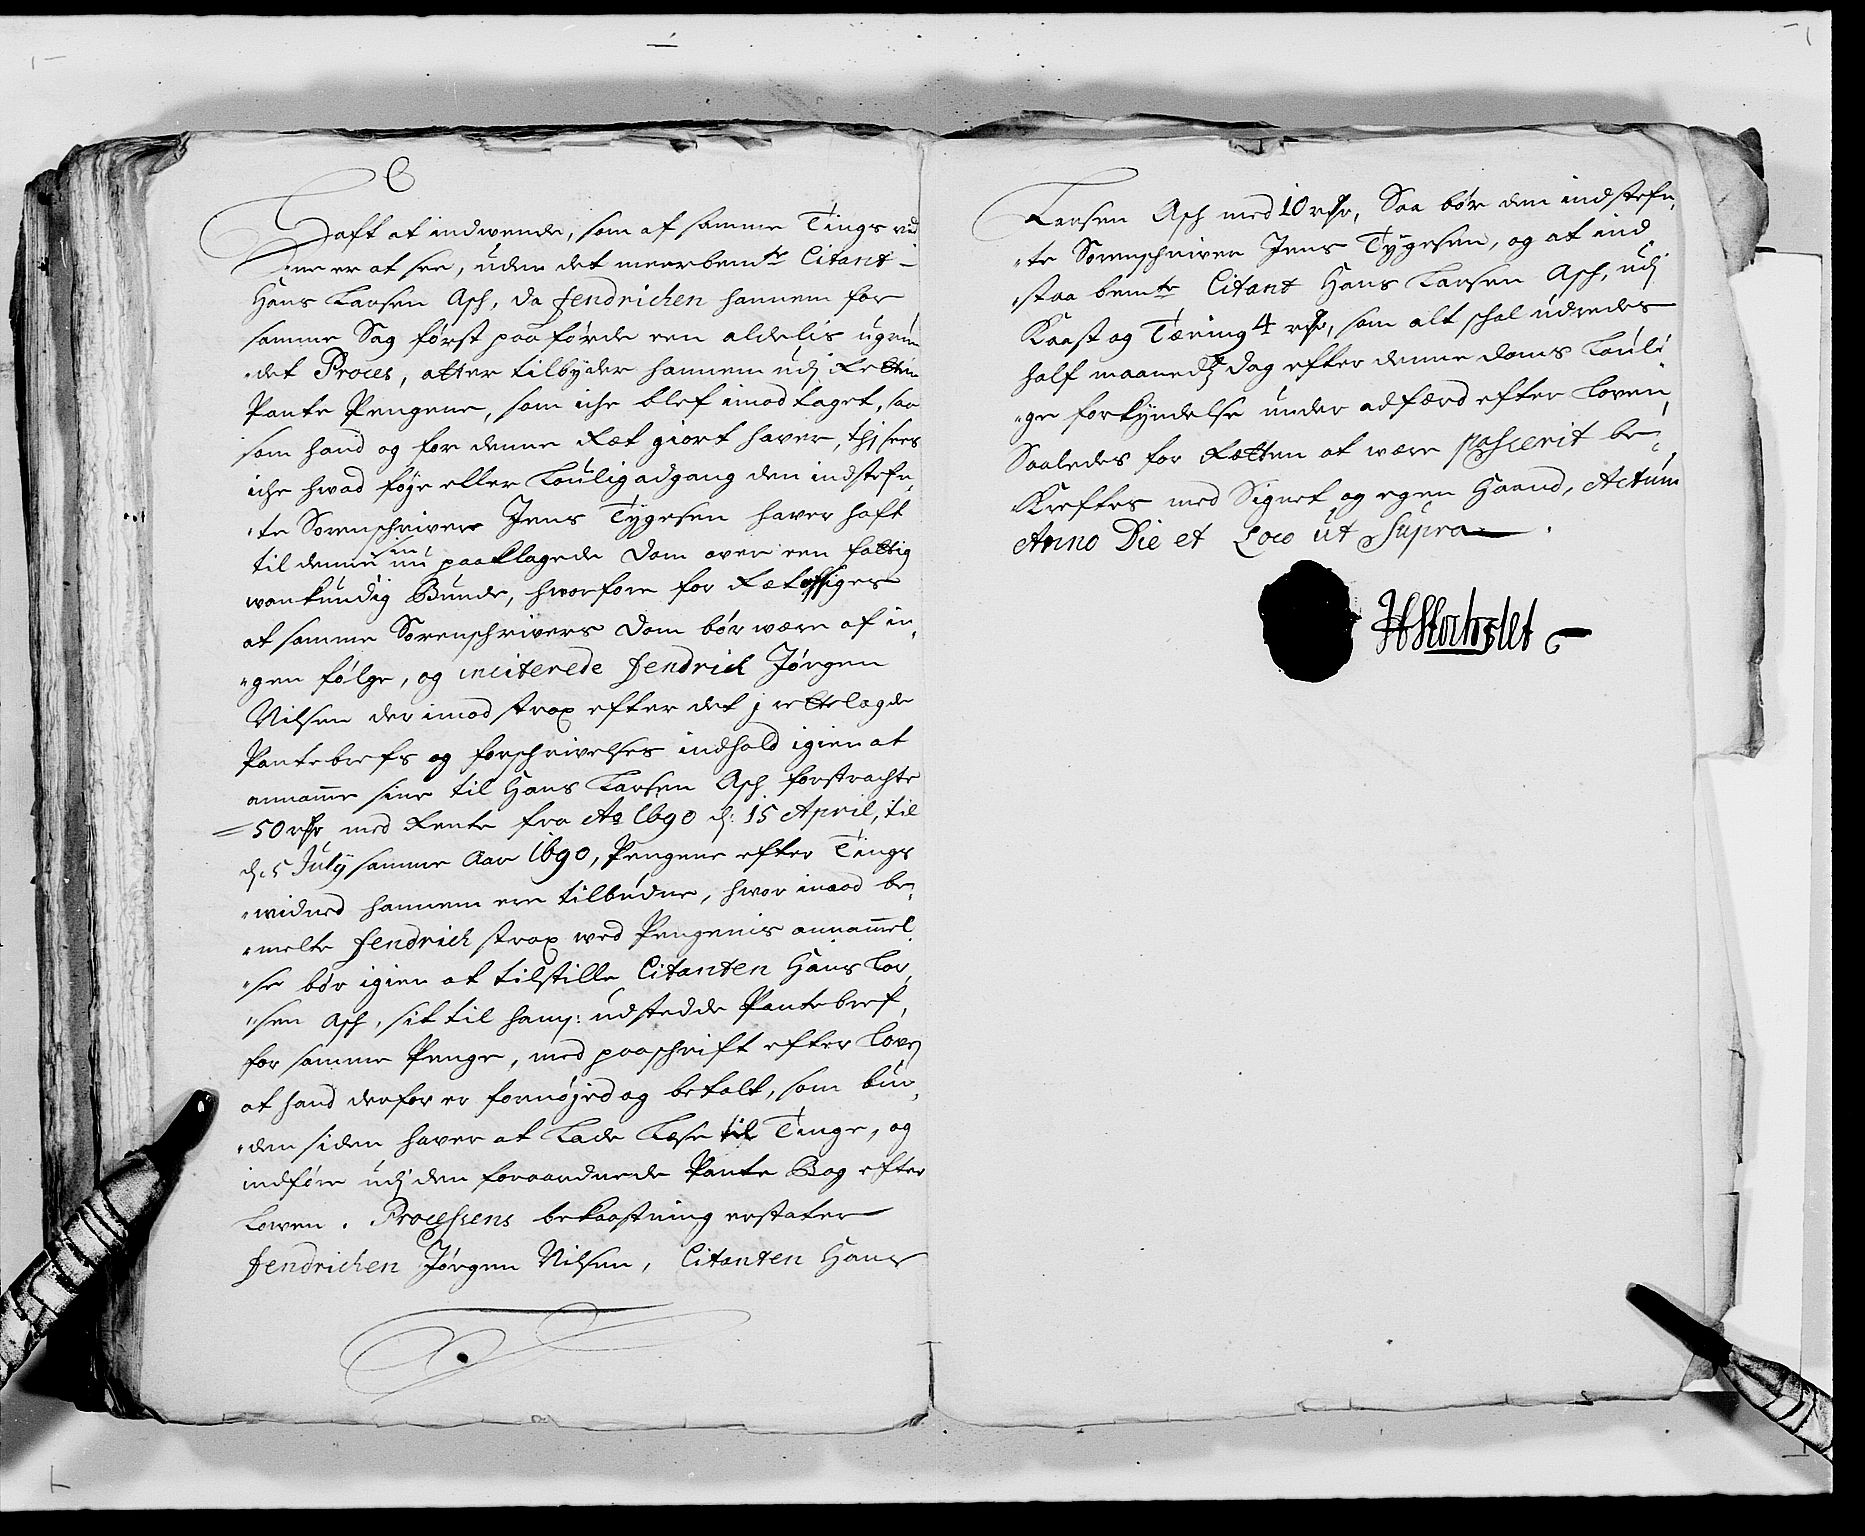 haft at indwende, som af samme Tings vid
ner er at see, uden det meerbemte Citant
Hans Larsen Ash, da fendrichen hannem for
samme Sag først paaførde een aldelis ugrun
det Proces, atter tilbyder hannem udj Retten
Pante Pengene, som iche blef imod taget, saa
som hand og for denne Ræt giort haver, thj sees
iche hvad føye eller Louligadgang den indstefn
te Sorenschriver Jens Tygesen haver haft
til denne sin nu paaklagede Dom over een fattig
wankundig Bunde, hvorfore for Ræt afsiges
at samme Sorenschrivers Dom bør være af in
gen følge, og inciterede fendrich Jørgen
Nilsen der imod strax efter det j rettelagde
Pantebrefs og forschrivelses indhold igien at
annamme sine til Hans Larsen Ash forstrachte
50 rdr med Rente fra Ao 1690 d: 15 April, til
d: 5 July samme Aar 1690, Pengene efter Tings
widned hannem ere tilbudne, hvor imod be
melte fendrich strax wed Pengenis annammel
se bør igien at tilstille Citanten Hans Lar
sen Ash, sit til ham: udstedde Pantebref,
for samme Penge, med paaschrift efter Loven
at hand derfor er fornøyed og betalt, som bun
den siden haver at Lade Læse til Tinge, og
indføre udj den foraardnede Pante Bog efter
Lowen. Processens bekaastning erstater
fendrichen Jørgen Nilsen, Citanten Hans
Larsen Ash med 10 rdr, Saa bør den indstefn
te Sorenschriver Jens Tygesen, og at ind
staa bemte Citant Hans Larsen Ash, udj
Kaast og Tæring 4 rdr, som alt schal udredes
half maaneds dag efter denne Doms Louli
ge forkyndelse under adfærd efter Loven,
Saaledes for Retten at være passerit be
Kreftes med Signet og egen Haand, Actum
Anno Die et Loco ut Supra